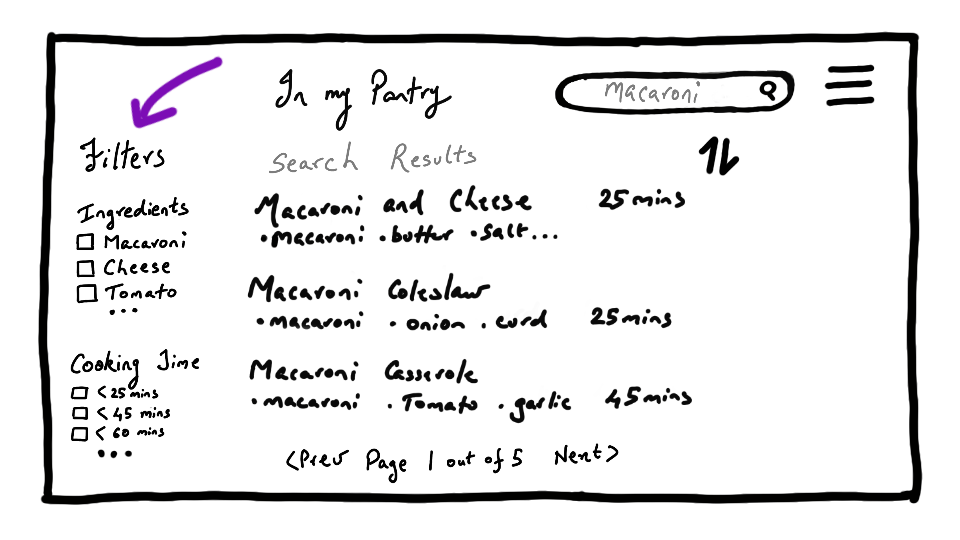 In my Pantry
Macaroni
Filters
Ingredients
Macaroni
Cheese
Tomato
...
Cooking Time
< 25 mins
< 45 mins
< 60 mins
...
Search Results
Macaroni and Cheese 25 mins
• macaroni • butter • salt...
Macaroni Coleslaw
• macaroni • onion • curd 25 mins
Macaroni Casserole
• macaroni • Tomato • garlic 45 mins
<Prev Page 1 out of 5 Next>